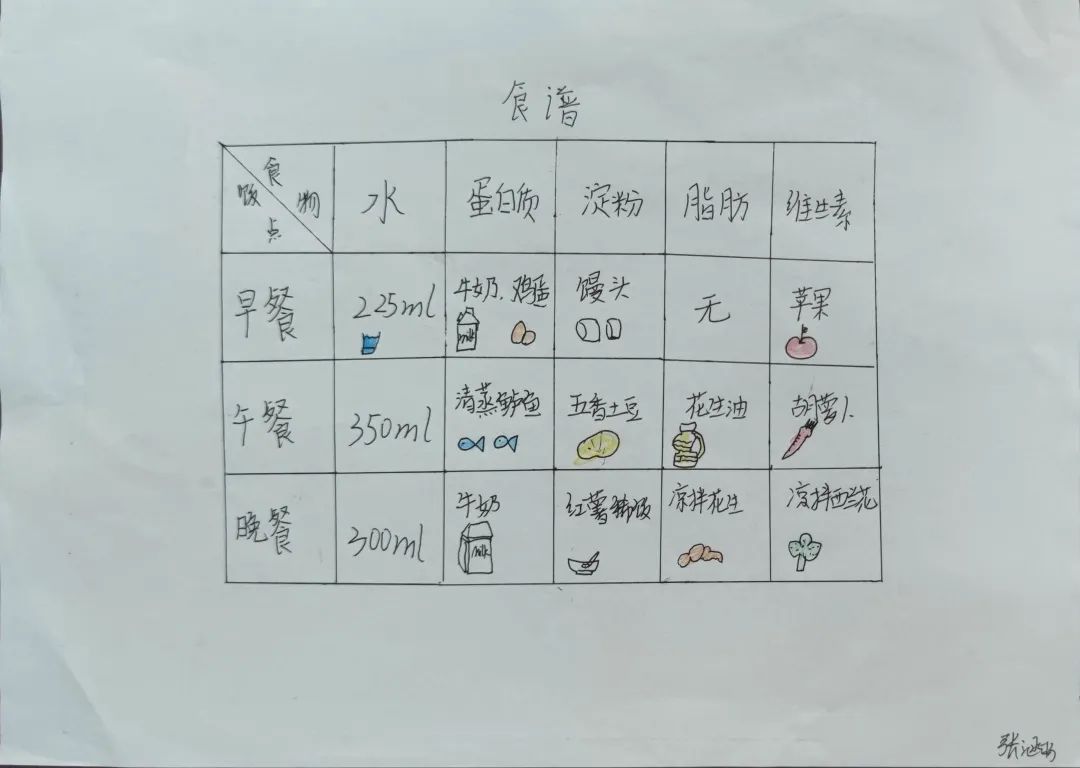 食谱
食物
饭点
水 蛋白质 淀粉 脂肪 维生素
早餐 225ml 牛奶、鸡蛋 馒头 无 苹果
milk
午餐 350ml 清蒸鲈鱼 五香土豆 花生油 胡萝卜
晚餐 300ml 牛奶 红薯稀饭 凉拌花生 凉拌西兰花
milk